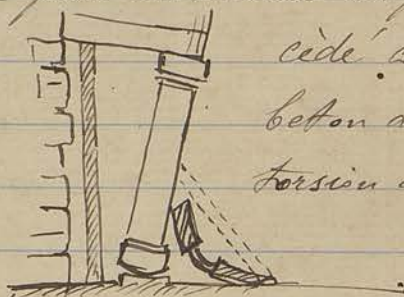 cédé
beton
torsion